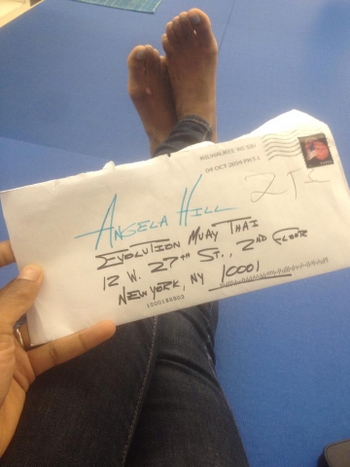 MILWAUKEE WI 530
04 OCT 2014 PM 5 L
ANGELA HILL
EVOLUTION MUAY THAI
12 W. 27TH ST., 2ND FLOOR
NEW YORK, NY 10001